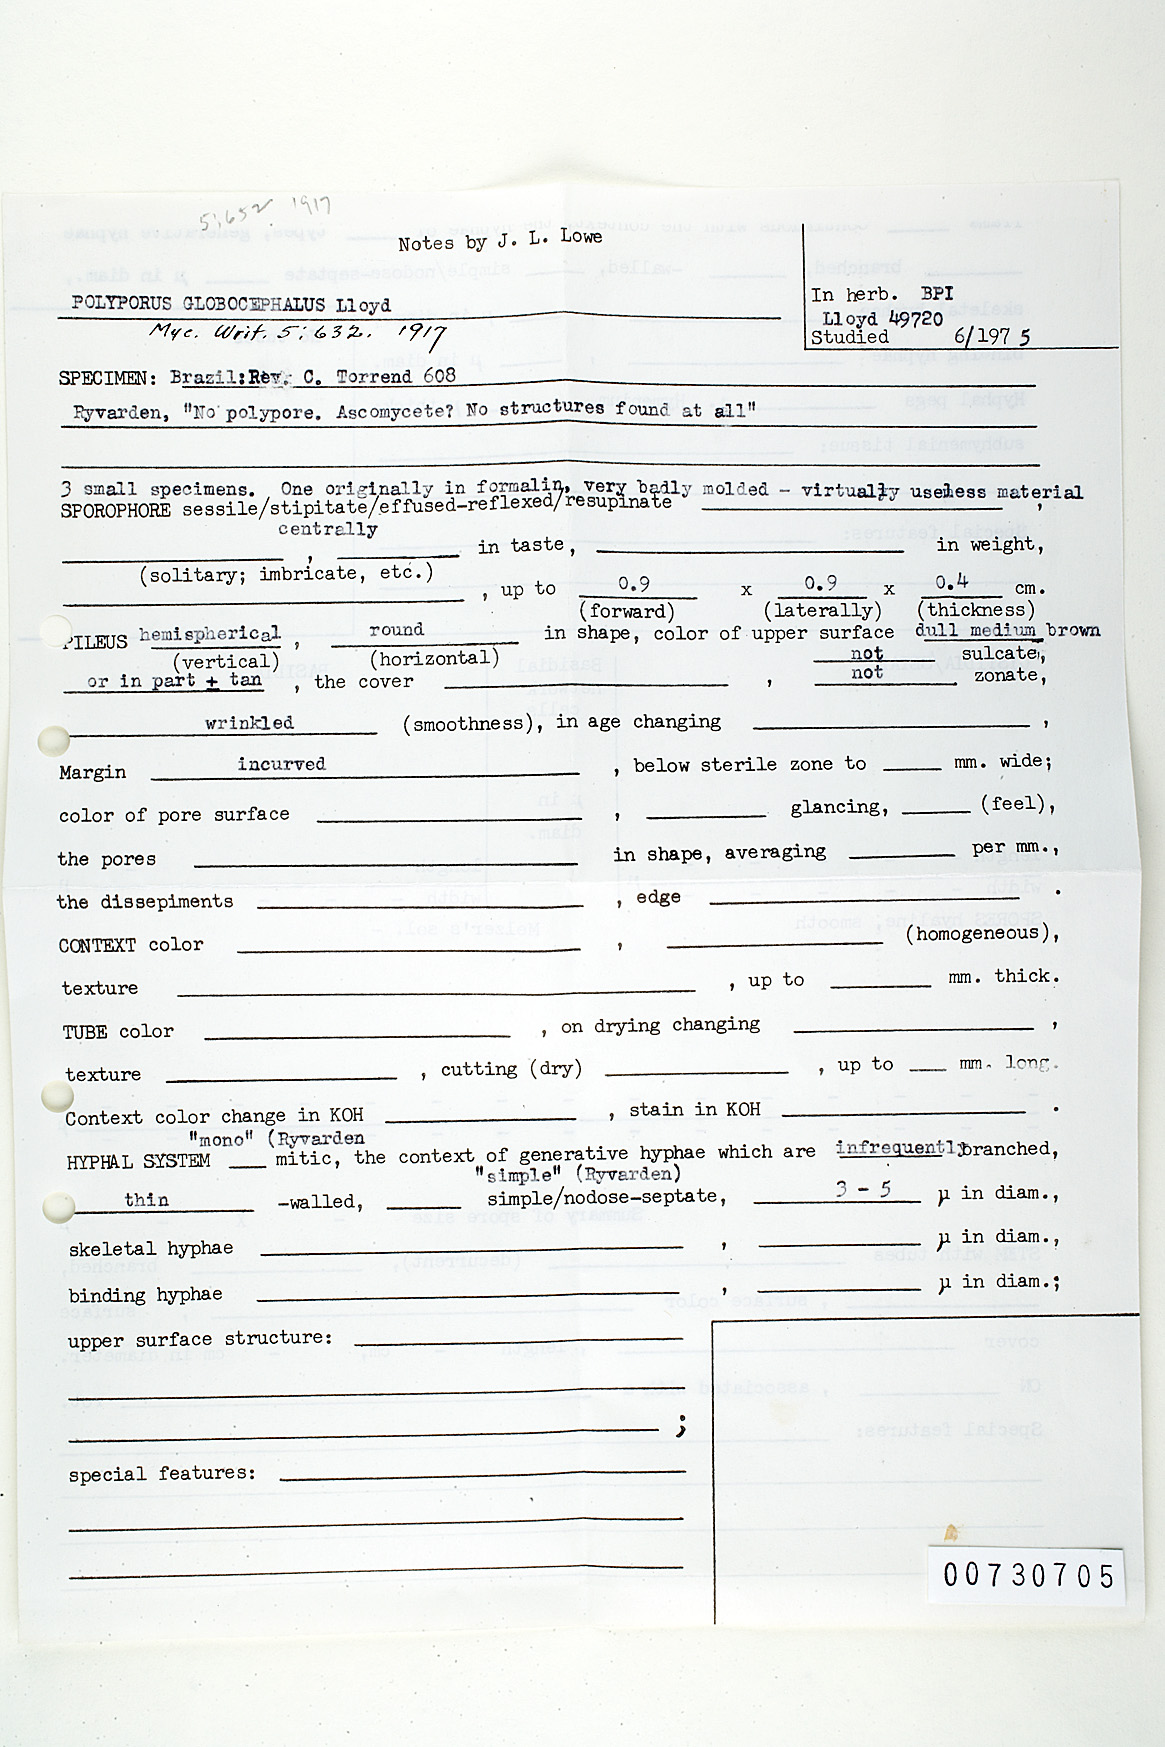 5:652 1917
Notes by J. L. Lowe
In herb. BPI
Lloyd 49720
Studied 6/197 5
POLYPORUS GLOBOCEPHALUS Lloyd
Myc. Writ. 5: 632. 1917
SPECIMEN: Brazil:Rev. C. Torrend 608
Ryvarden, "No polypore. Ascomycete? No structures found at all"
3 small specimens. One originally in formalin, very badly molded - virtually useless material
SPOROPHORE sessile/stipitate/effused-reflexed/resupinate ,
centrally
, in taste, in weight,
(solitary; imbricate, etc.)
, up to 0.9 x 0.9 x 0.4 cm.
(forward) (laterally) (thickness)
PILEUS hemispherical , round in shape, color of upper surface dull medium brown
(vertical) (horizontal) not sulcate,
or in part + tan , the cover , not zonate,
wrinkled (smoothness), in age changing ,
Margin incurved , below sterile zone to mm. wide;
color of pore surface , glancing, (feel),
the pores in shape, averaging per mm.,
the dissepiments , edge .
CONTEXT color , (homogeneous),
texture , up to mm. thick.
TUBE color , on drying changing ,
texture , cutting (dry) , up to mm. long.
Context color change in KOH , stain in KOH .
"mono" (Ryvarden
HYPHAL SYSTEM mitic, the context of generative hyphae which are infrequently branched,
"simple" (Ryvarden)
thin -walled, simple/nodose-septate, 3 - 5 µ in diam.,
skeletal hyphae , µ in diam.,
binding hyphae , µ in diam.;
upper surface structure:
;
special features:
00730705